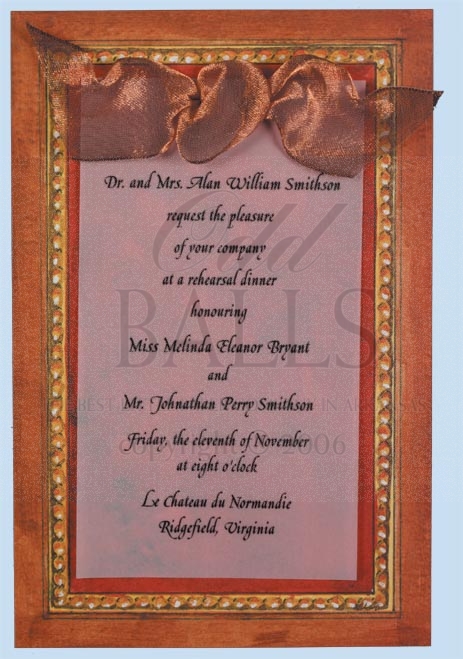 Dr. and Mrs. Alan William Smithson
request the pleasure
of your company
at a rehearsal dinner
honouring
Miss Melinda Eleanor Bryant
and
Mr. Johnathan Perry Smithson
Friday, the eleventh of November
at eight o'clock
Le Chateau du Normandie
Ridgefield, Virginia
Odd
BALLS
copyright © 2006